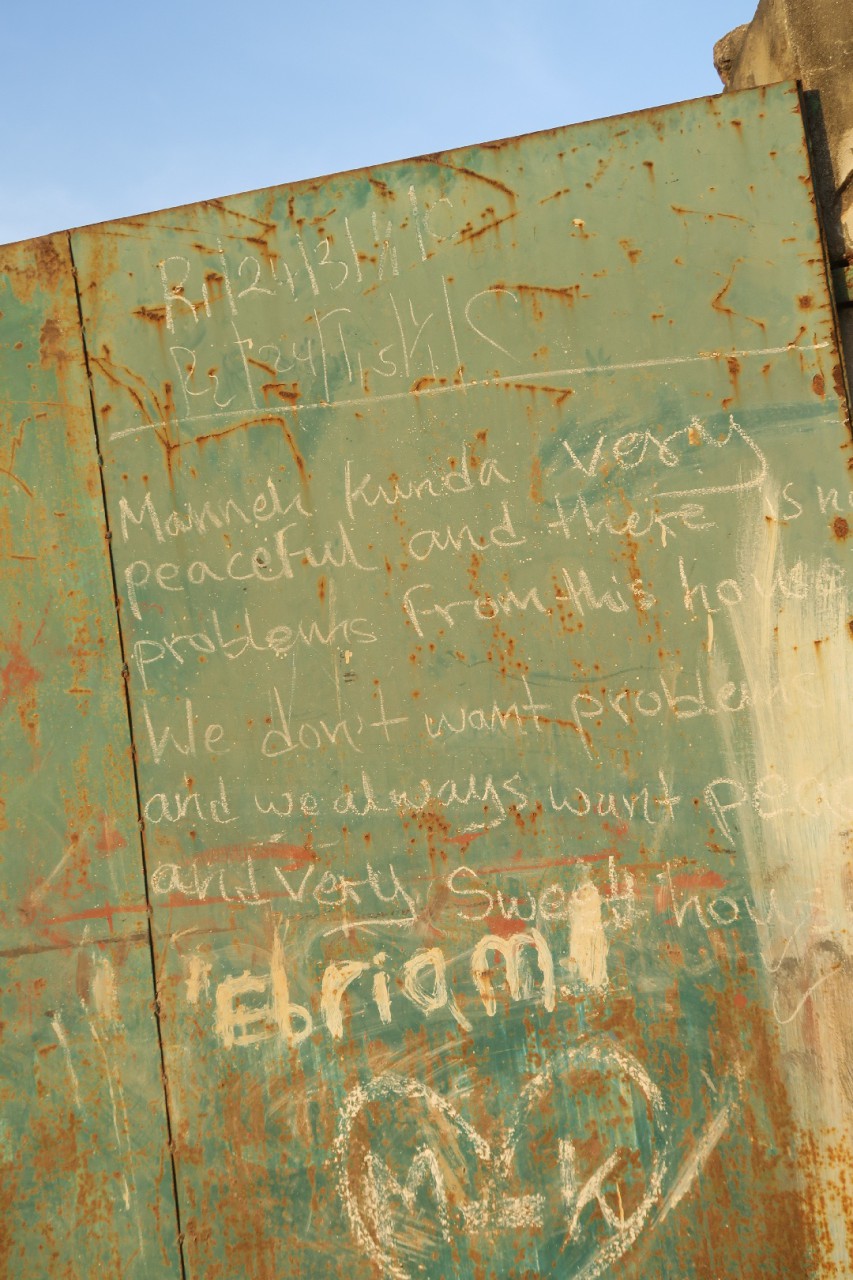 R1/24/3/4/C
R2/24/1,5/1/C
Manneh kunda very
peaceful and there is no
problems From this house
We don't want problems
and we always want peace
and very Sweet
"Ebriam"
M K